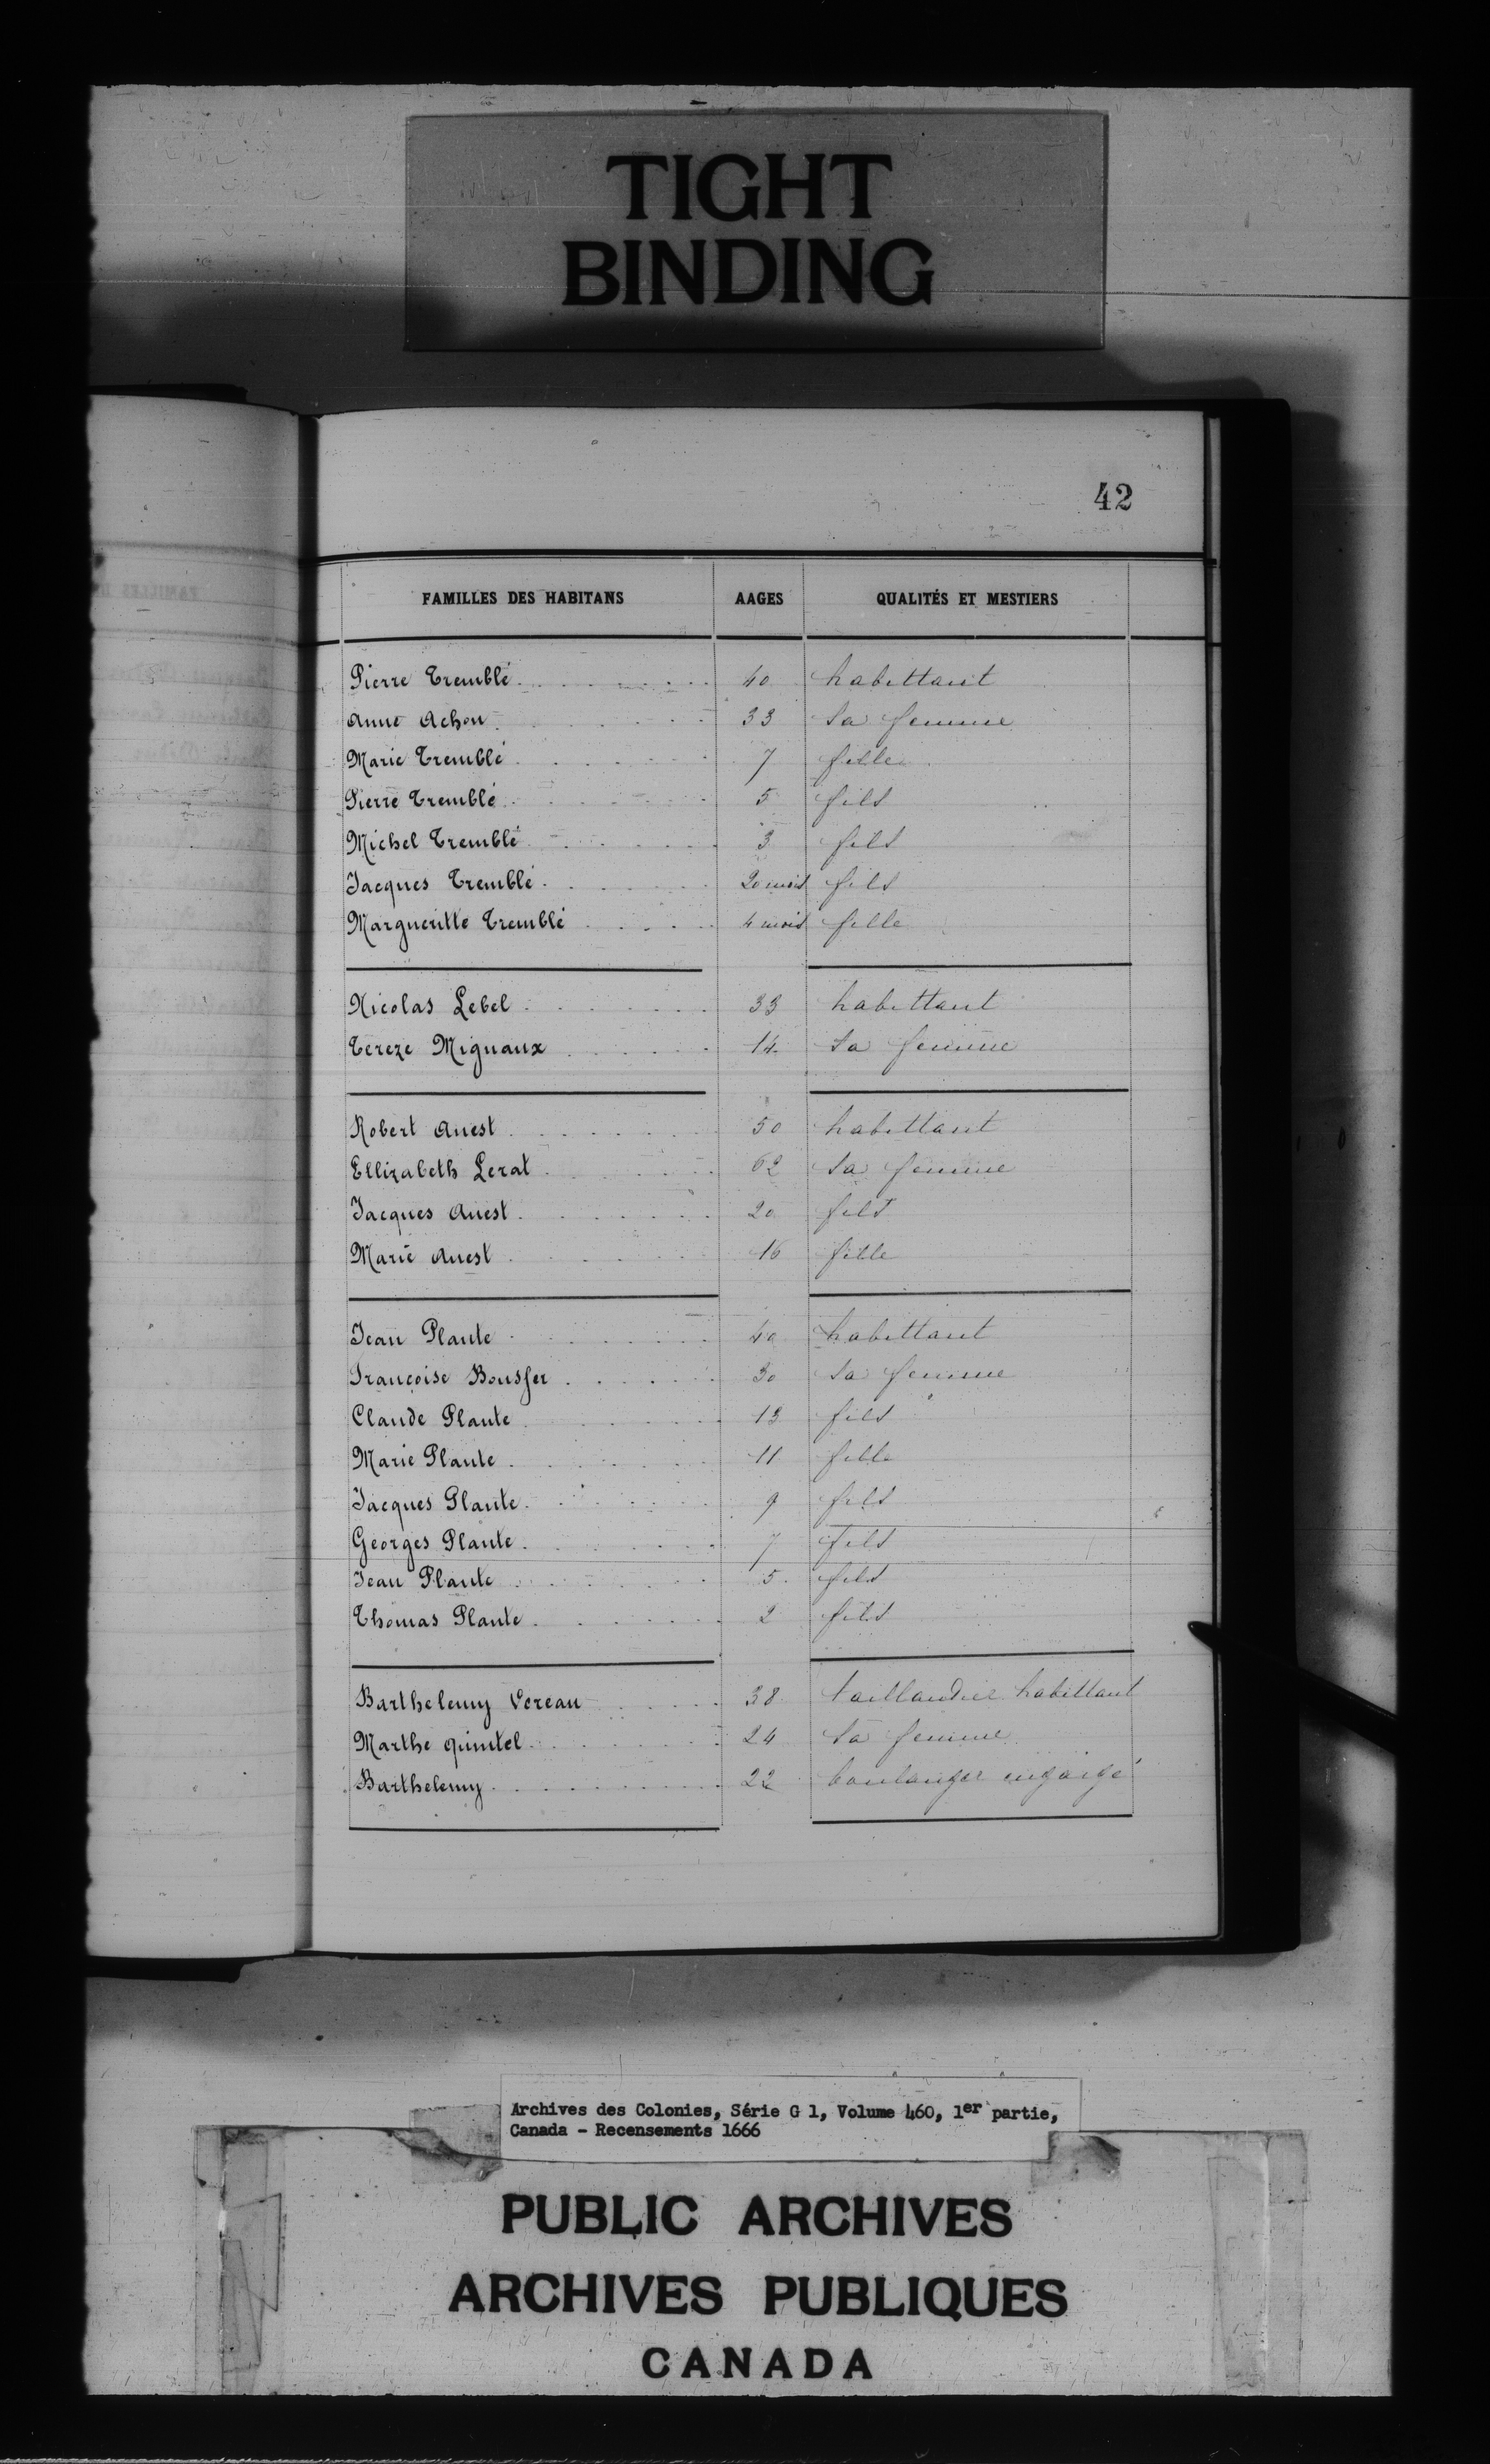 TIGHT
BINDING
42
FAMILLES DES HABITANS AAGES QUALITÉS ET MESTIERS
Pierre Tremblé 40 habittant
Anne Achon 33 sa femme
Marie Tremblé 7 fille
Pierre Tremblé 5 fils
Michel Tremblé 3 fils
Jacques Tremblé 20 mois fils
Margueritte Tremblé 4 mois fille
Nicolas Lebel 33 habittant
Tereze Mignaux 14 sa femme
Robert Auest 50 habittant
Ellizabeth Lerat 62 sa femme
Jacques Auest 20 fils
Marie Auest 16 fille
Jean Plante 40 habittant
Francoise Bousser 30 sa femme
Claude Plante 13 fils
Marie Plante 11 fille
Jacques Plante 9 fils
Georges Plante 7 fils
Jean Plante 5 fils
Thomas Plante 2 fils
Barthelemy Vereau 38 taillandier habittant
Marthe quintel 24 sa femme
Barthelemy 22 boulanger engaigé
Archives des Colonies, Série G 1, Volume 460, 1er partie,
Canada - Recensements 1666
PUBLIC ARCHIVES
ARCHIVES PUBLIQUES
CANADA